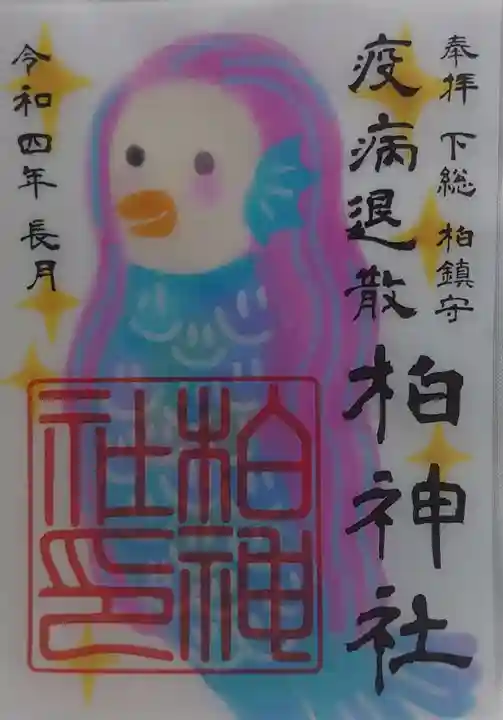 奉拝 下総 柏鎮守
疫病退散
柏神社
令和四年 長月
柏神社印